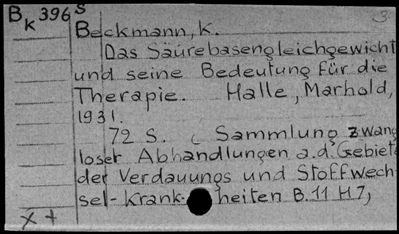 Bk 396 S
3.
Beckmann, K.
Das Säurebasengleichgewicht
und seine Bedeutung für die
Therapie. Halle, Marhold,
1931.
72 S. ( Sammlung zwang
loser Abhandlungen a.d. Gebiete
der Verdauungs und Stoffwech
sel-Krank- heiten B. 11 H 7,
x +